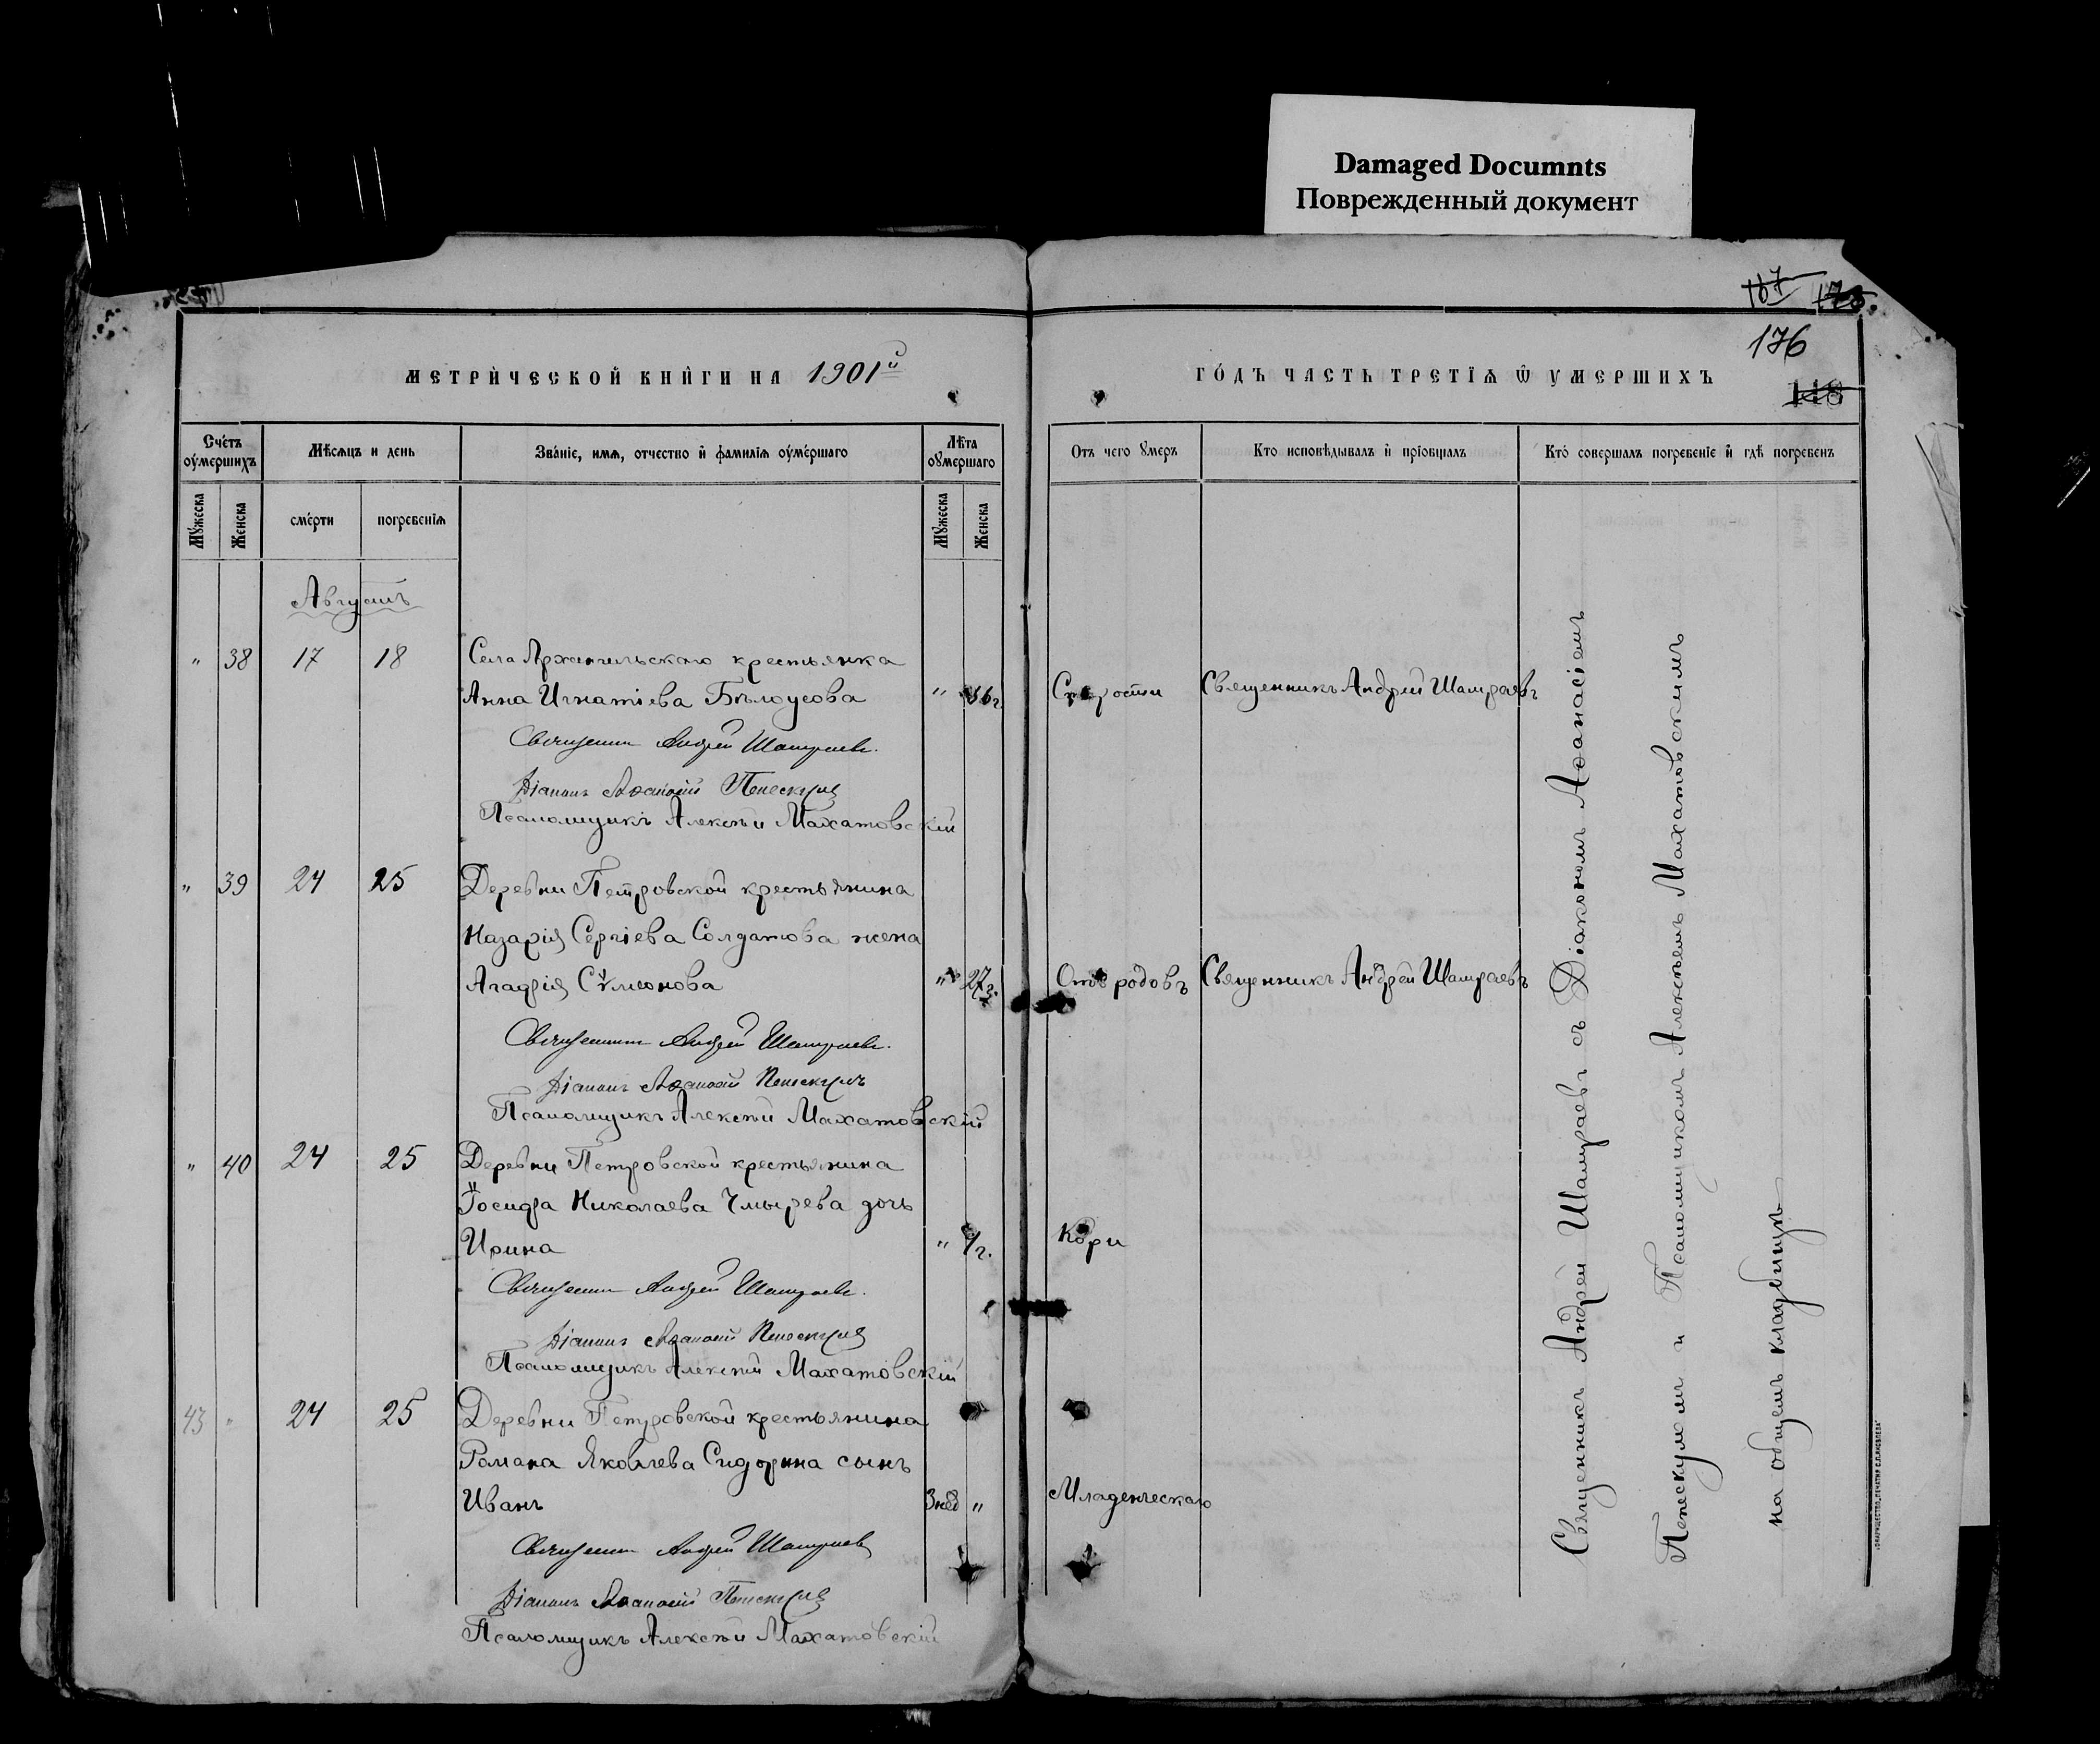 Damaged Documnts
Поврежденный документ
167 173.
176
118
МЕТРИЧЕСКОЙ КНИГИ НА 1901й
ГОДЪ ЧАСТЬ ТРЕТІЯ Ѿ УМЕРШИХЪ
Счетъ оумершихъ
Мѣсяцъ и день
Званіе, имя, отчество и фамилія оумершаго
Лѣта оумершаго
Отъ чего умеръ
Кто исповѣдывалъ и пріобщалъ
Кто совершалъ погребеніе и гдѣ погребенъ
Мужеска
Женска
смерти
погребенія
Мужеска
Женска
Августъ
" 38 17 18 Села Архангельскаго крестьянка
Анна Игнатіева Бѣлоусова " г. Старости Священникъ Андрей Шамраевъ
Священникъ Андрей Шамраевъ.
Діаконъ Аѳанасій Пепескулъ
Псаломщикъ Алексѣй Махатовскій
" 39 24 25 Деревни Петровской крестьянина
Назарія Сергіева Солдатова жена
Агафія Сѵмеонова " 27 г. Отъ родовъ Священникъ Андрей Шамраевъ
Священникъ Андрей Шамраевъ.
Діаконъ Аѳанасій Пепескулъ
Псаломщикъ Алексѣй Махатовскій
" 40 24 25 Деревни Петровской крестьянина
Іосифа Николаева Чмырева дочь
Ирина " г. Кори
Священникъ Андрей Шамраевъ.
Діаконъ Аѳанасій Пепескулъ
Псаломщикъ Алексѣй Махатовскій
43 " 24 25 Деревни Петровской крестьянина
Романа Яковлева Сидорина сынъ
Иванъ 3 нед " Младенческаго
Священникъ Андрей Шамраевъ
Діаконъ Аѳанасій Пепескулъ
Псаломщикъ Алексѣй Махатовскій
Священникъ Андрей Шамраевъ съ Діакономъ Аѳанасіемъ
Пепескуломъ и Псаломщикомъ Алексѣемъ Махатовскимъ
на общемъ кладбищѣ